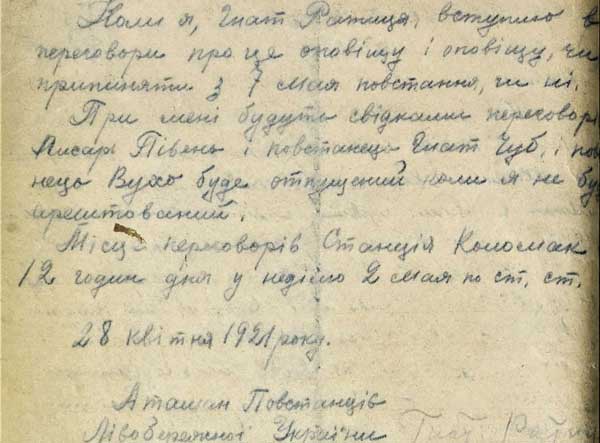 Коли я, Гнат Ратиця, вступлю в
переговори про це оповіщу і оповіщу, чи
припиняти з 7 мая повстання, чи ні.
При мені будуть свідками переговорі
писарь Півень і повстанець Гнат Чуб, і пов
нець Вухо буде отпущений коли я не бу
арештований.
Місце переговорів Станція Коломак
12 годин дня у неділю 2 мая по ст. ст.
28 квітня 1921 року.
Атаман Повстанців
Лівобережної України Гнат